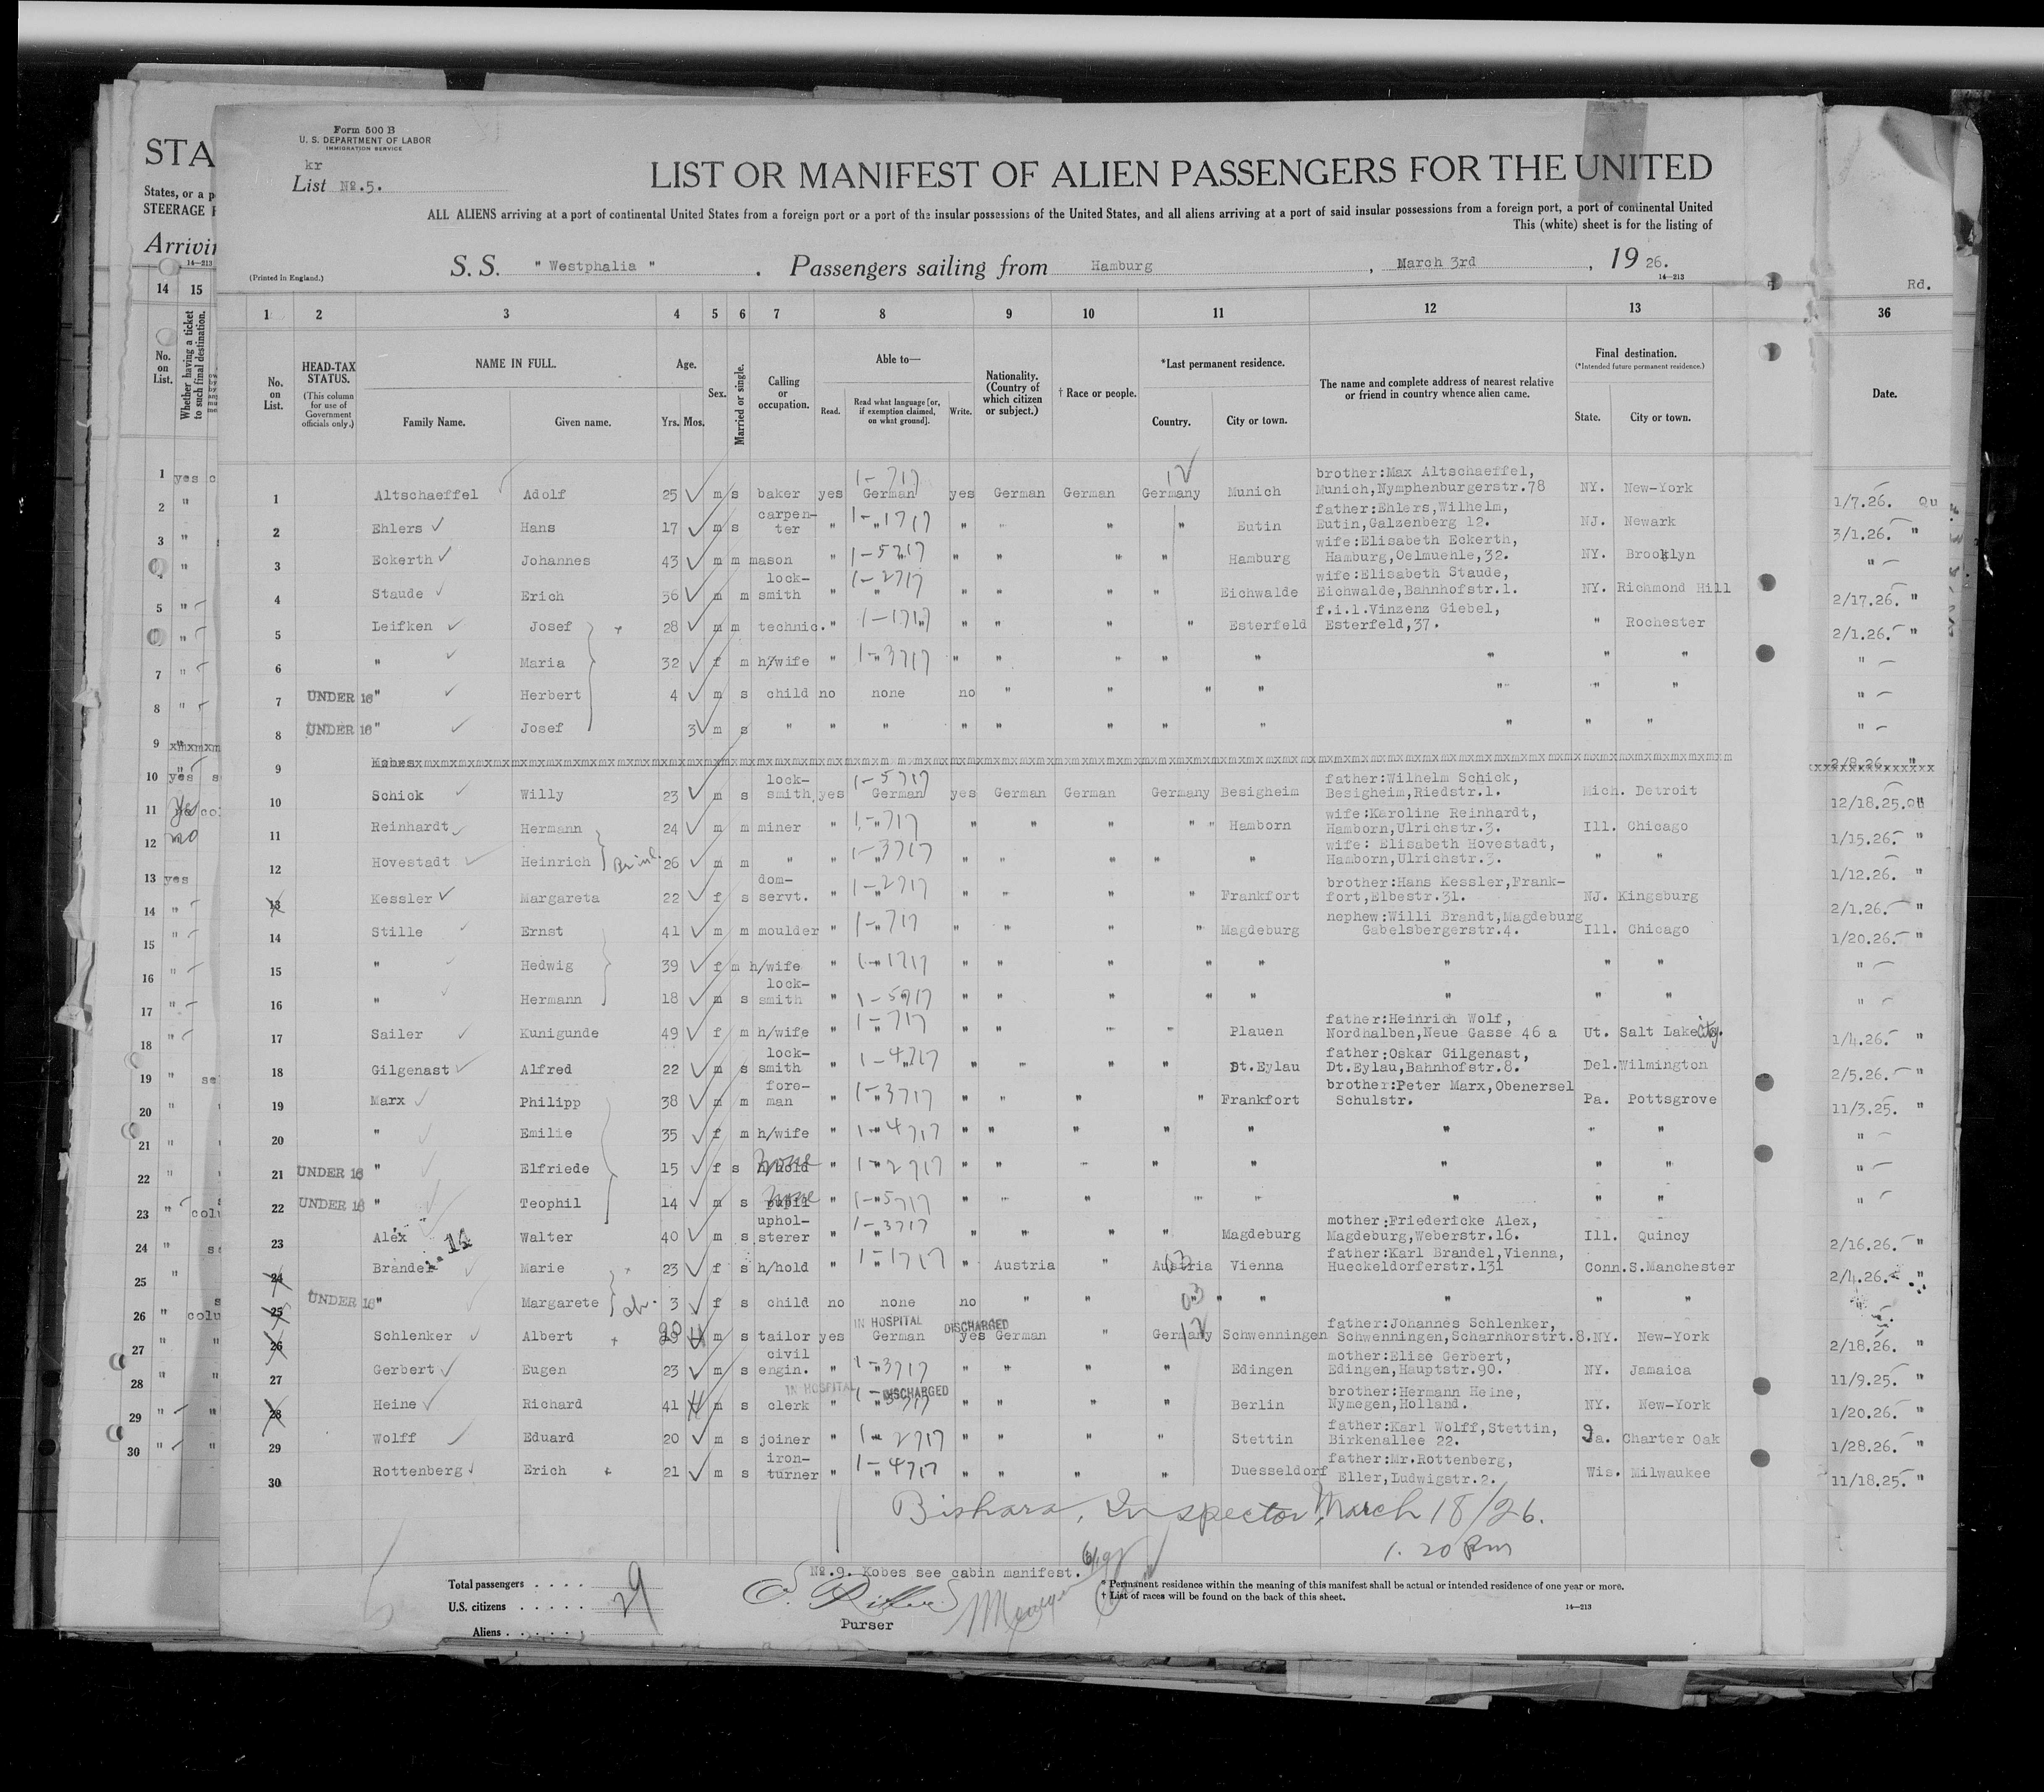 Form 500 B
U. S. DEPARTMENT OF LABOR
IMMIGRATION SERVICE
kr
List No.5.
STA
States, or a p
STEERAGE
Arrivin
14—213
LIST OR MANIFEST OF ALIEN PASSENGERS FOR THE UNITED
ALL ALIENS arriving at a port of continental United States from a foreign port or a port of the insular possessions of the United States, and all aliens arriving at a port of said insular possessions from a foreign port, a port of continental United
This (white) sheet is for the listing of
(Printed in England.)
S. S. " Westphalia " . Passengers sailing from Hamburg , March 3rd , 19 26.
14—213
Rd.
14 15 1 2 3 4 5 6 7 8 9 10 11 12 13 36
No. on List.
Whether having a ticket to such final destination.
No. on List.
HEAD-TAX STATUS. (This column for use of Government officials only.)
NAME IN FULL.
Family Name. Given name.
Age. Yrs. Mos.
Sex.
Married or single.
Calling or occupation.
Able to—
Read. Read what language [or, if exemption claimed, on what ground]. Write.
Nationality. (Country of which citizen or subject.)
† Race or people.
*Last permanent residence.
Country. City or town.
The name and complete address of nearest relative or friend in country whence alien came.
Final destination.
(*Intended future permanent residence.)
State. City or town.
Date.
brother:Max Altschaeffel,
1 Altschaeffel Adolf 25 m s baker yes German yes German German Germany Munich Munich,Nymphenburgerstr.78 NY. New-York 1/7.26. Qu
carpen- father:Ehlers,Wilhelm,
2 Ehlers Hans 17 m s ter " " " " " " Eutin Eutin,Galzenberg 12. NJ. Newark 3/1.26. "
wife:Elisabeth Eckerth,
3 Eckerth Johannes 43 m m mason " " " " " " Hamburg Hamburg,Oelmuehle,32. NY. Brooklyn "
lock- wife:Elisabeth Staude,
4 Staude Erich 36 m m smith " " " " " " Eichwalde Eichwalde,Bahnhofstr.1. NY. Richmond Hill 2/17.26. "
f.i.l.Vinzenz Giebel,
5 Leifken Josef 28 m m technic. " " " " " " Esterfeld Esterfeld,37. " Rochester 2/1.26. "
6 " Maria 32 f m h/wife " " " " " " " " " " "
7 UNDER 16 " Herbert 4 m s child no none no " " " " " " " "
8 UNDER 16 " Josef 3 m s " " " " " " " " " " " "
9 Kobes 2/8.26. "
lock- father:Wilhelm Schick,
10 Schick Willy 23 m s smith, yes German yes German German Germany Besigheim Besigheim,Riedstr.1. Mich. Detroit 12/18.25.Qu
wife:Karoline Reinhardt,
11 Reinhardt Hermann 24 m m miner " " " " " " Hamborn Hamborn,Ulrichstr.3. Ill. Chicago 1/15.26. "
wife: Elisabeth Hovestadt,
12 Hovestadt Heinrich 26 m m " " " " " " " " Hamborn,Ulrichstr.3. " " 1/12.26. "
dom- brother:Hans Kessler,Frank-
13 Kessler Margareta 22 f s servt. " " " " " " Frankfort fort,Elbestr.31. NJ. Kingsburg 2/1.26. "
nephew:Willi Brandt,Magdeburg
14 Stille Ernst 41 m m moulder " " " " " " Magdeburg Gabelsbergerstr.4. Ill. Chicago 1/20.26. "
15 " Hedwig 39 f m h/wife " " " " " " " " " " "
lock-
16 " Hermann 18 m s smith " " " " " " " " " " "
father:Heinrich Wolf,
17 Sailer Kunigunde 49 f m h/wife " " " " " " Plauen Nordhalben,Neue Gasse 46 a Ut. Salt Lake City. 1/4.26. "
lock- father:Oskar Gilgenast,
18 Gilgenast Alfred 22 m s smith " " " " " " Dt.Eylau Dt.Eylau,Bahnhofstr.8. Del. Wilmington 2/5.26. "
fore- brother:Peter Marx,Obenersel
19 Marx Philipp 38 m m man " " " " " " Frankfort Schulstr. Pa. Pottsgrove 11/3.25. "
20 " Emilie 35 f m h/wife " " " " " " " " " " "
21 UNDER 16 " Elfriede 15 f s none " " " " " " " " " " "
22 UNDER 16 " Teophil 14 m s none " " " " " " " " " " "
uphol- mother:Friedericke Alex,
23 Alex Walter 40 m s sterer " " " " " " Magdeburg Magdeburg,Weberstr.16. Ill. Quincy 2/16.26. "
father:Karl Brandel,Vienna,
24 Brandel Marie 23 f s h/hold " " " Austria " Austria Vienna Hueckeldorferstr.131 Conn. S.Manchester 2/4.26.
25 UNDER 16 " Margarete 3 f s child no none no " " " " " " "
IN HOSPITAL DISCHARGED father:Johannes Schlenker,
26 Schlenker Albert 20 m s tailor yes German yes German " Germany Schwenningen Schwenningen,Scharnhorstrt.8. NY. New-York 2/18.26. "
civil mother:Elise Gerbert,
27 Gerbert Eugen 23 m s engin. " " " " " " Edingen Edingen,Hauptstr.90. NY. Jamaica 11/9.25. "
IN HOSPITAL DISCHARGED brother:Hermann Heine,
28 Heine Richard 41 m s clerk " " " " " " Berlin Nymegen,Holland. NY. New-York 1/20.26. "
father:Karl Wolff,Stettin,
29 Wolff Eduard 20 m s joiner " " " " " " Stettin Birkenallee 22. Ia. Charter Oak 1/28.26. "
iron- father:Mr.Rottenberg,
30 Rottenberg Erich 21 m s turner " " " " " " Duesseldorf Eller,Ludwigstr.2. Wis. Milwaukee 11/18.25. "
Bishara, Inspector, March 18/26.
1. 20 Pm
No.9. Kobes see cabin manifest.
Total passengers . . . .
U.S. citizens . . . . .
29
Aliens . . . . . .
Purser
* Permanent residence within the meaning of this manifest shall be actual or intended residence of one year or more.
† List of races will be found on the back of this sheet.
14—213